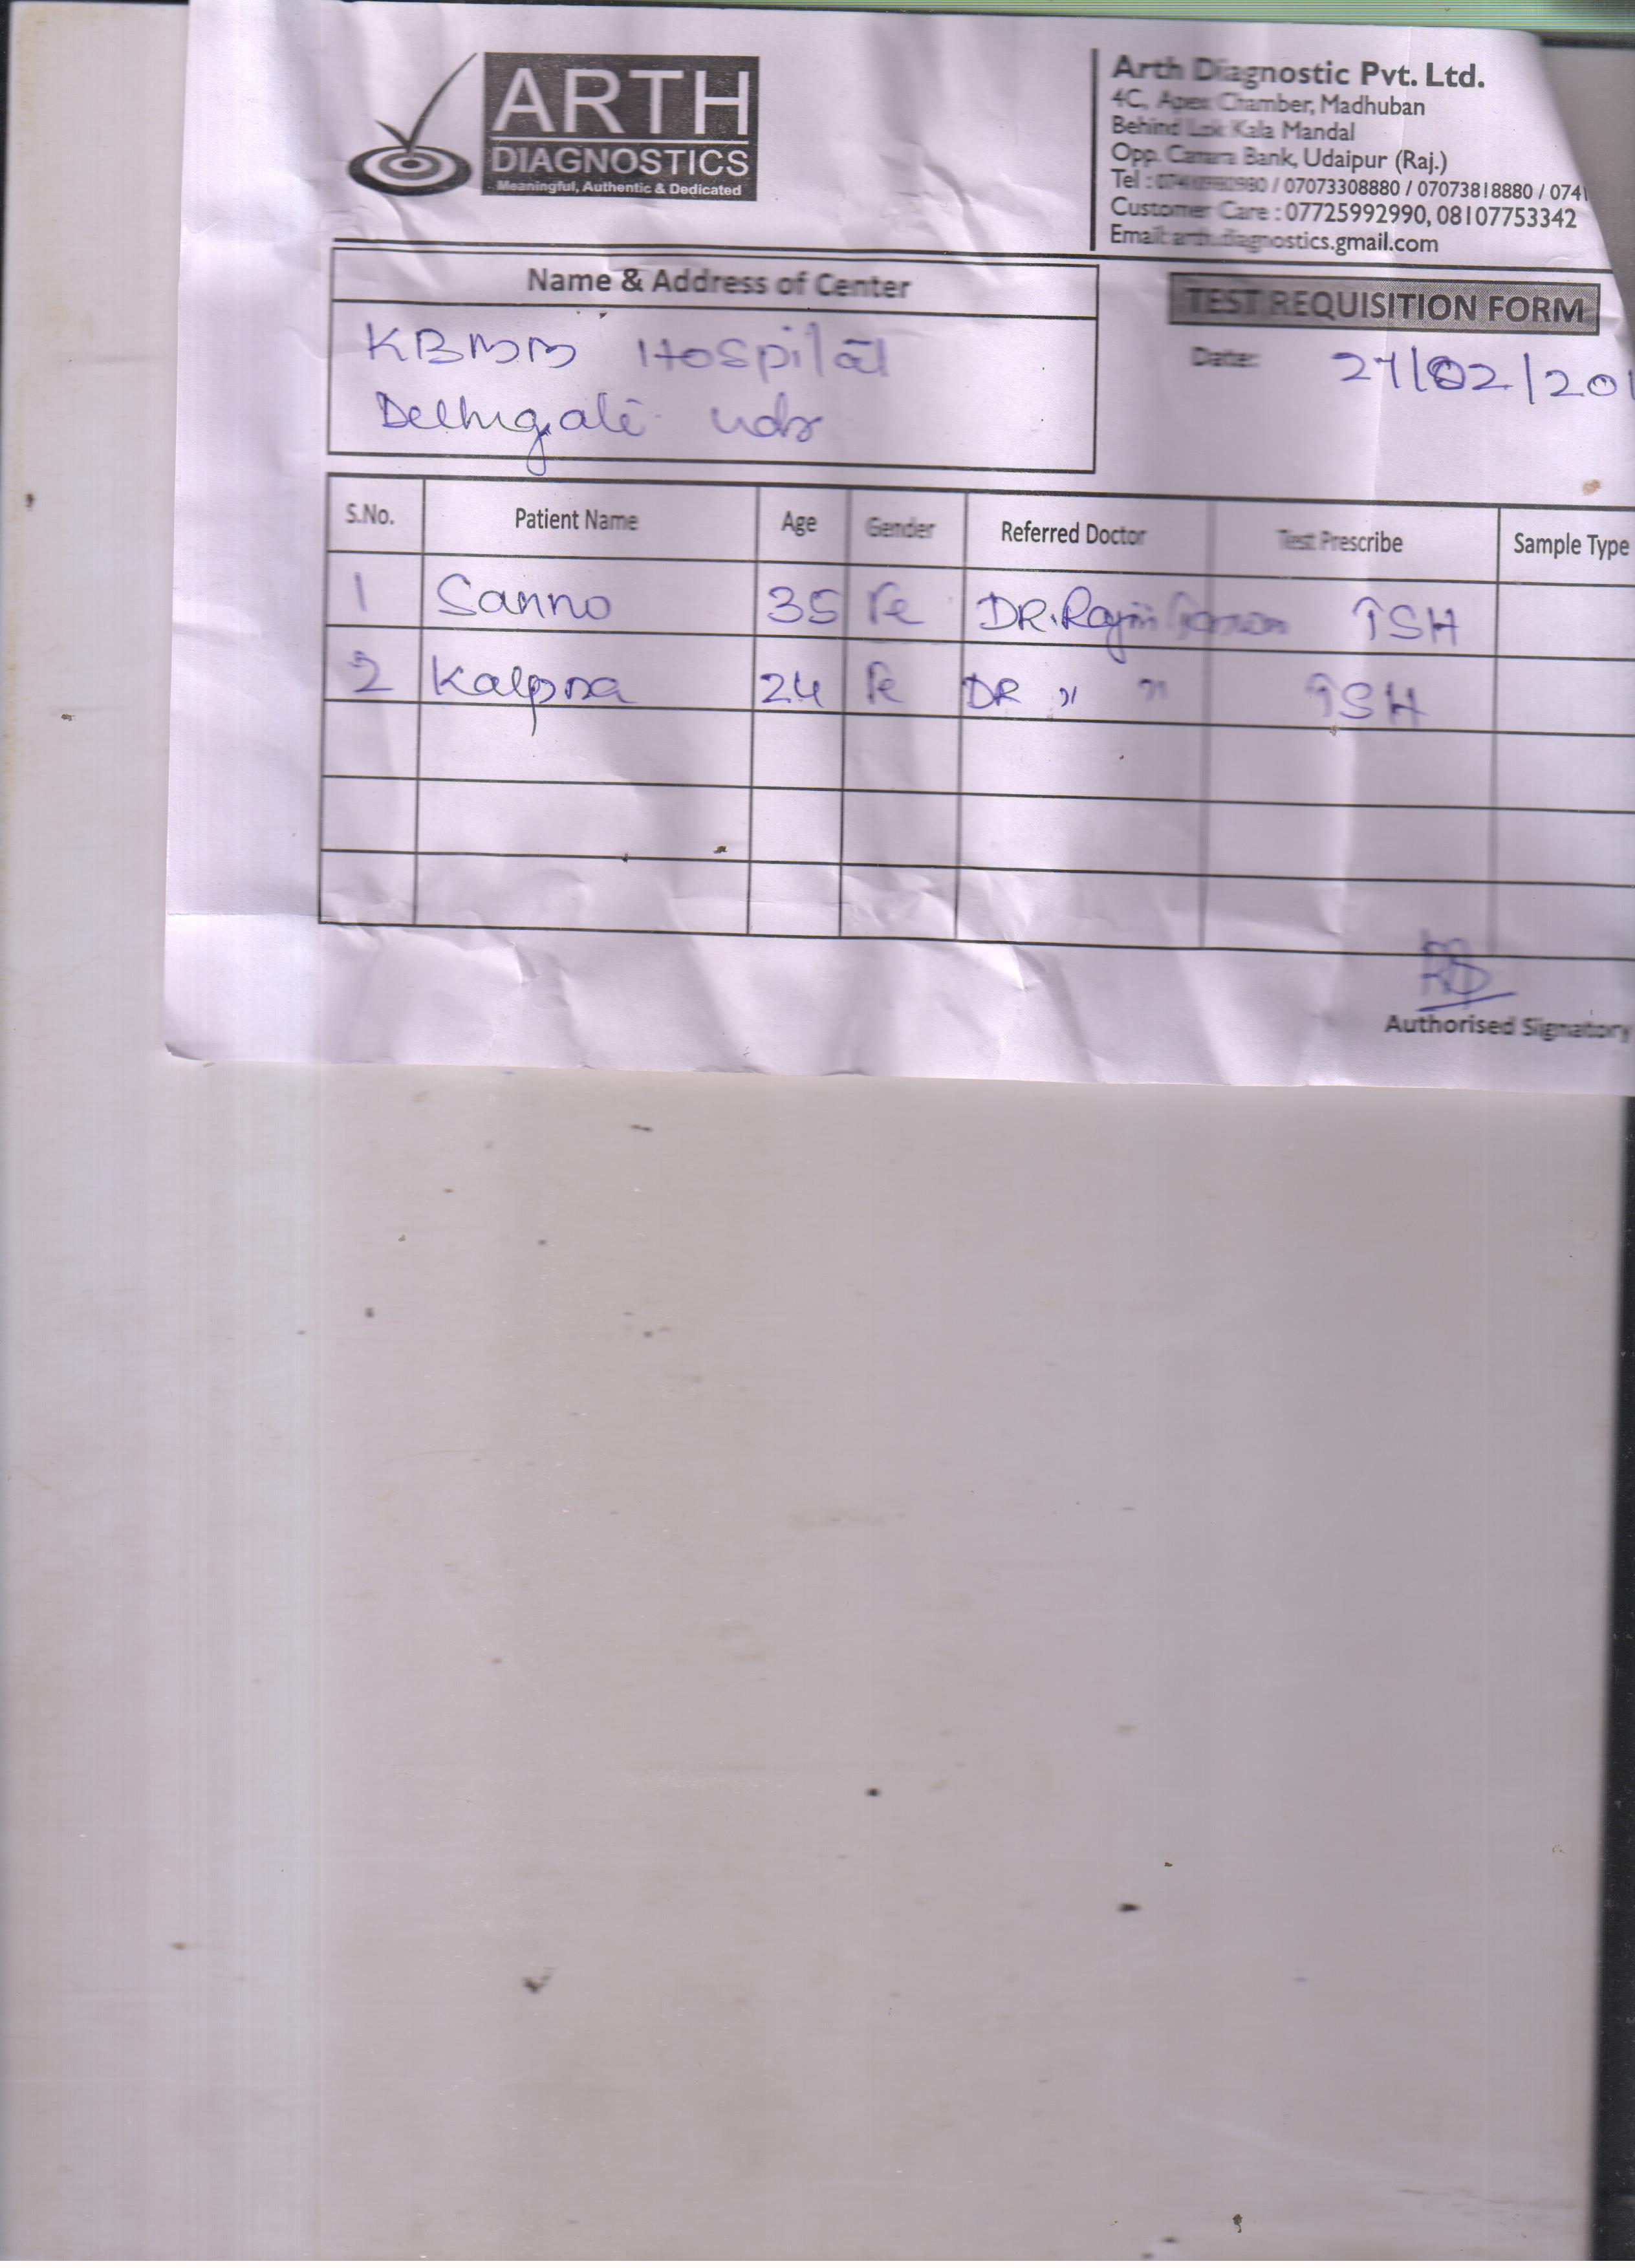 ARTH
DIAGNOSTICS
Meaningful, Authentic & Dedicated
Arth Diagnostic Pvt. Ltd.
4C, Apex Chamber, Madhuban
Behind Lok Kala Mandal
Opp. Canara Bank, Udaipur (Raj.)
Tel : / 07073308880 / 07073818880 / 0741
Customer Care : 07725992990, 08107753342
Email: arth.diagnostics.gmail.com
Name & Address of Center
TEST REQUISITION FORM
Hospital
Date: 27/02/201
Delhigate udr
S.No. Patient Name Age Gender Referred Doctor Test Prescribe Sample Type
1 Sanno 35 Fe DR. TSH
2 Kalpna 24 Fe DR " " TSH
Authorised Signatory